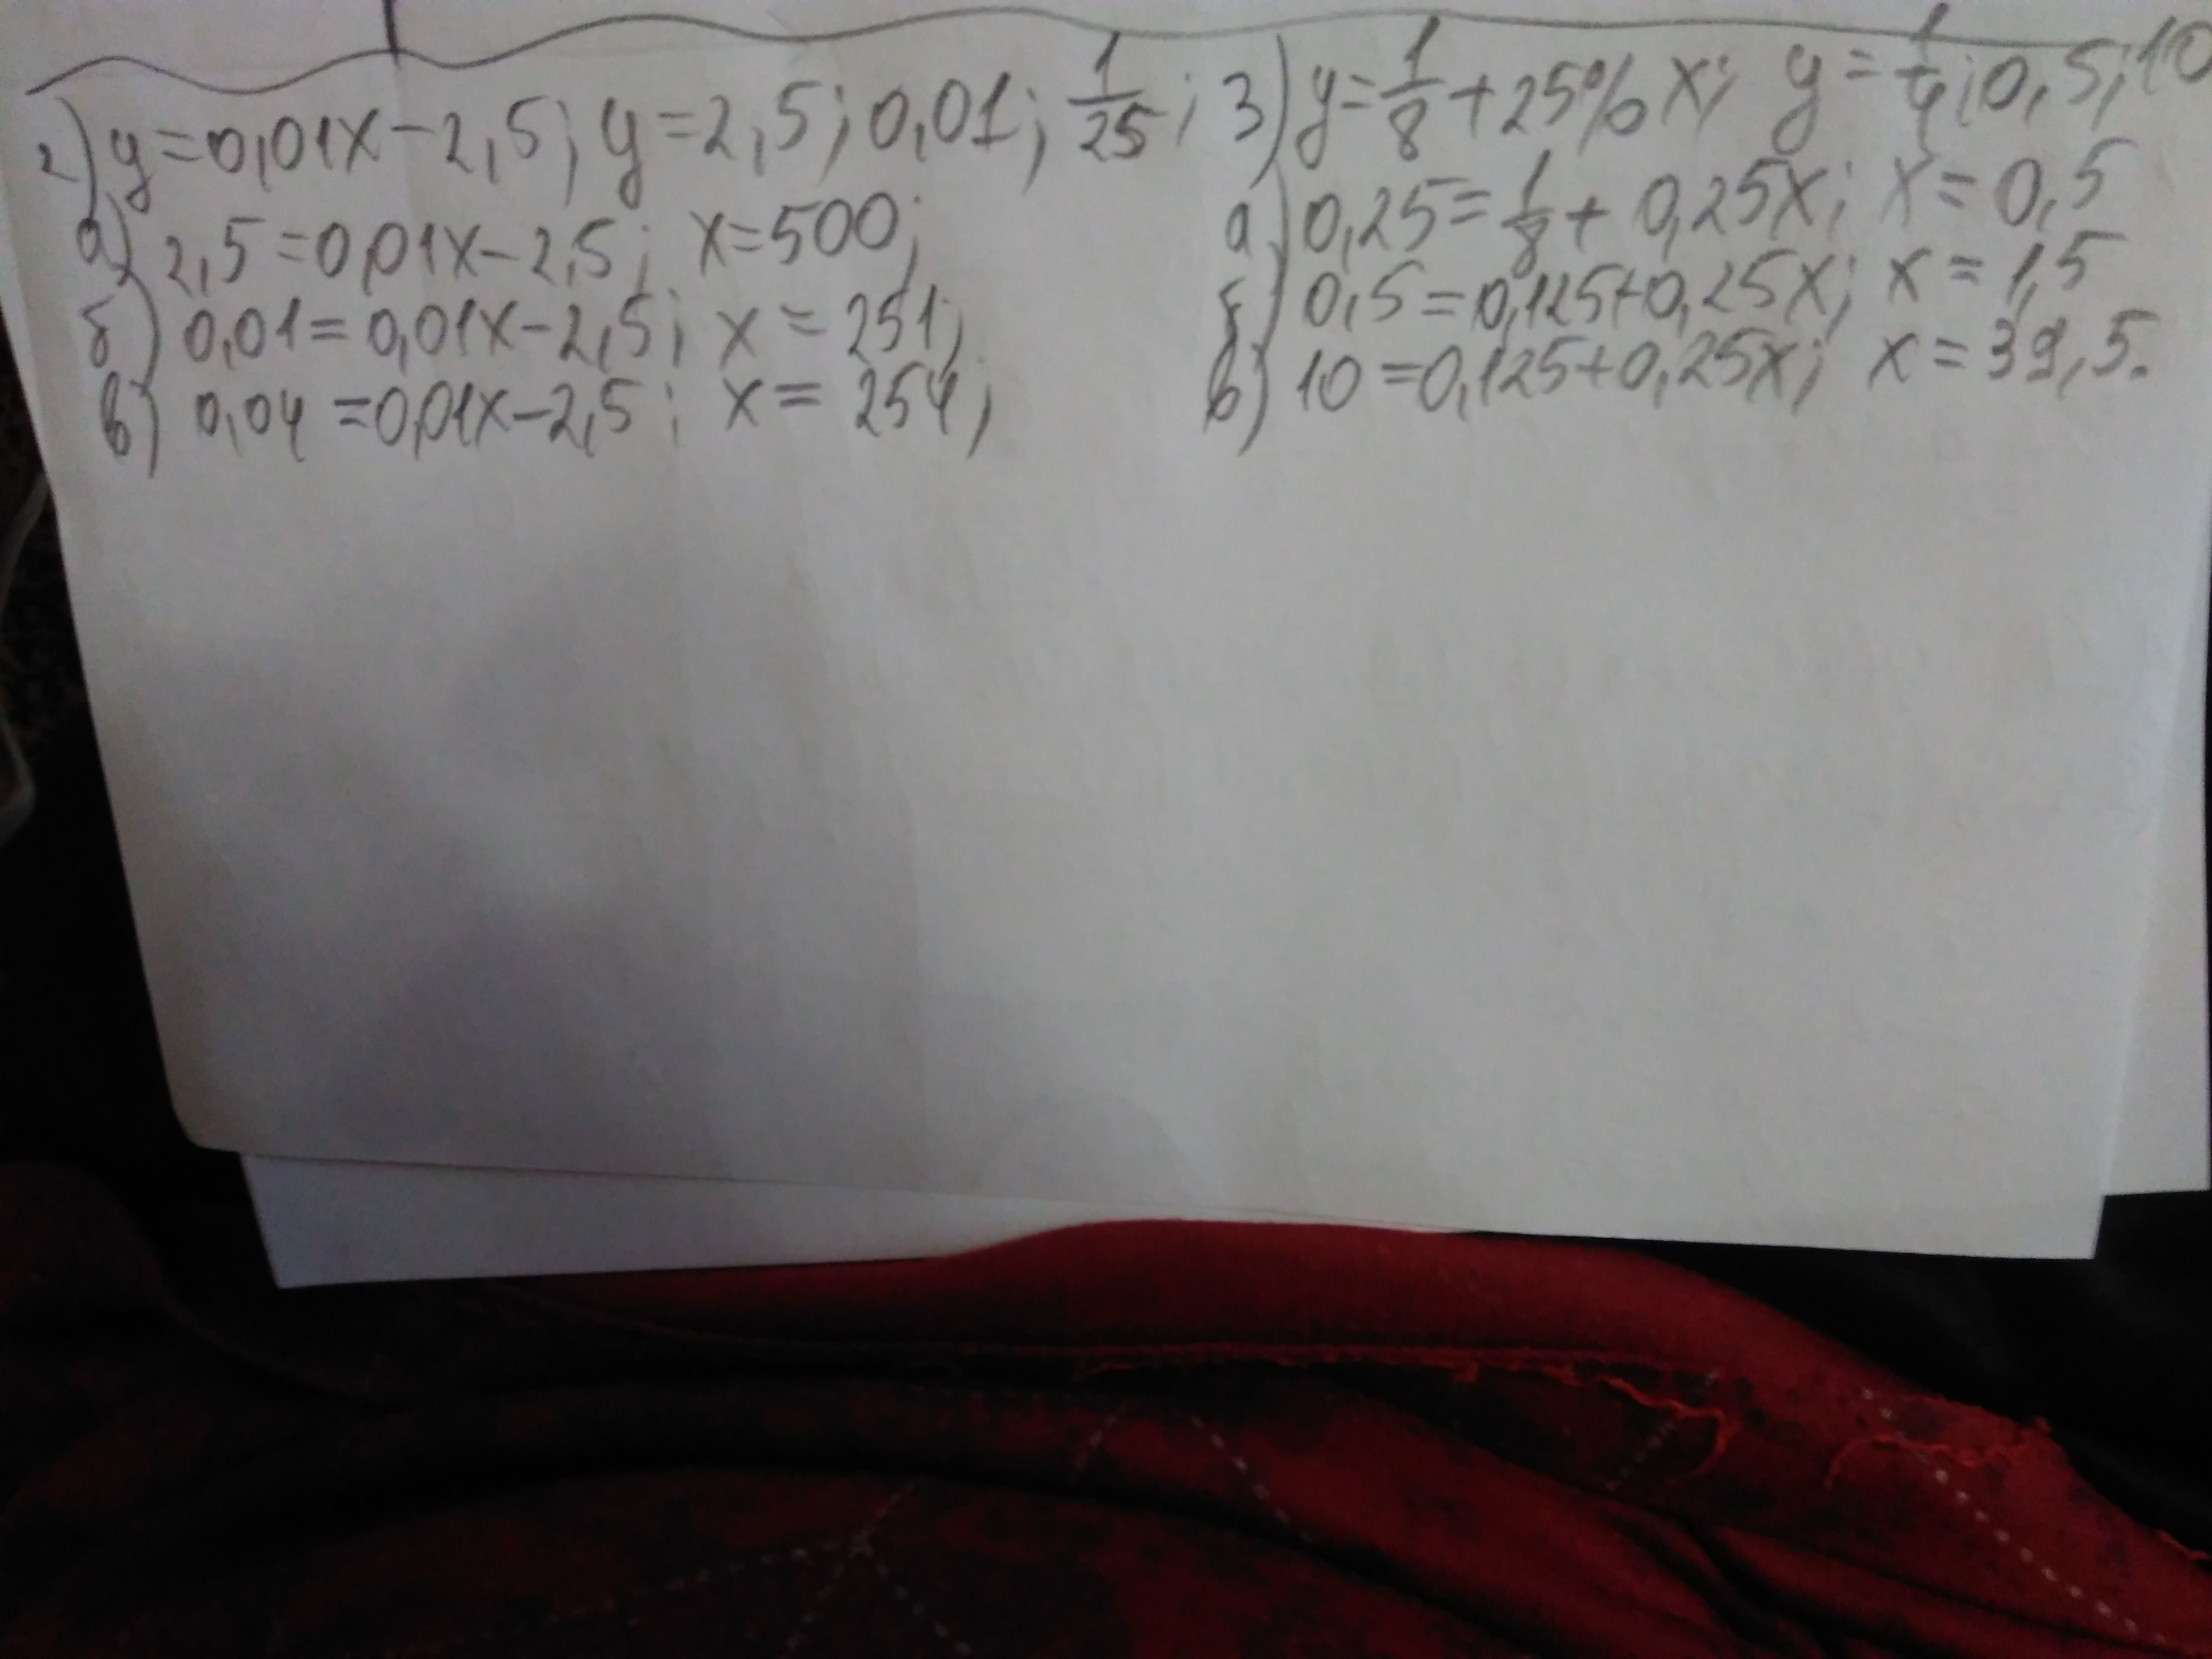 2) y=0,01x-2,5; y=2,5; 0,01; 1/25;
а) 2,5=0,01x-2,5; x=500;
б) 0,01=0,01x-2,5; x=251;
в) 0,04=0,01x-2,5; x=254;
3) y=1/8+25% x; y=1/4; 0,5; 10
а) 0,25=1/8+0,25x; x=0,5
б) 0,5=0,125+0,25x; x=1,5
в) 10=0,125+0,25x; x=39,5.